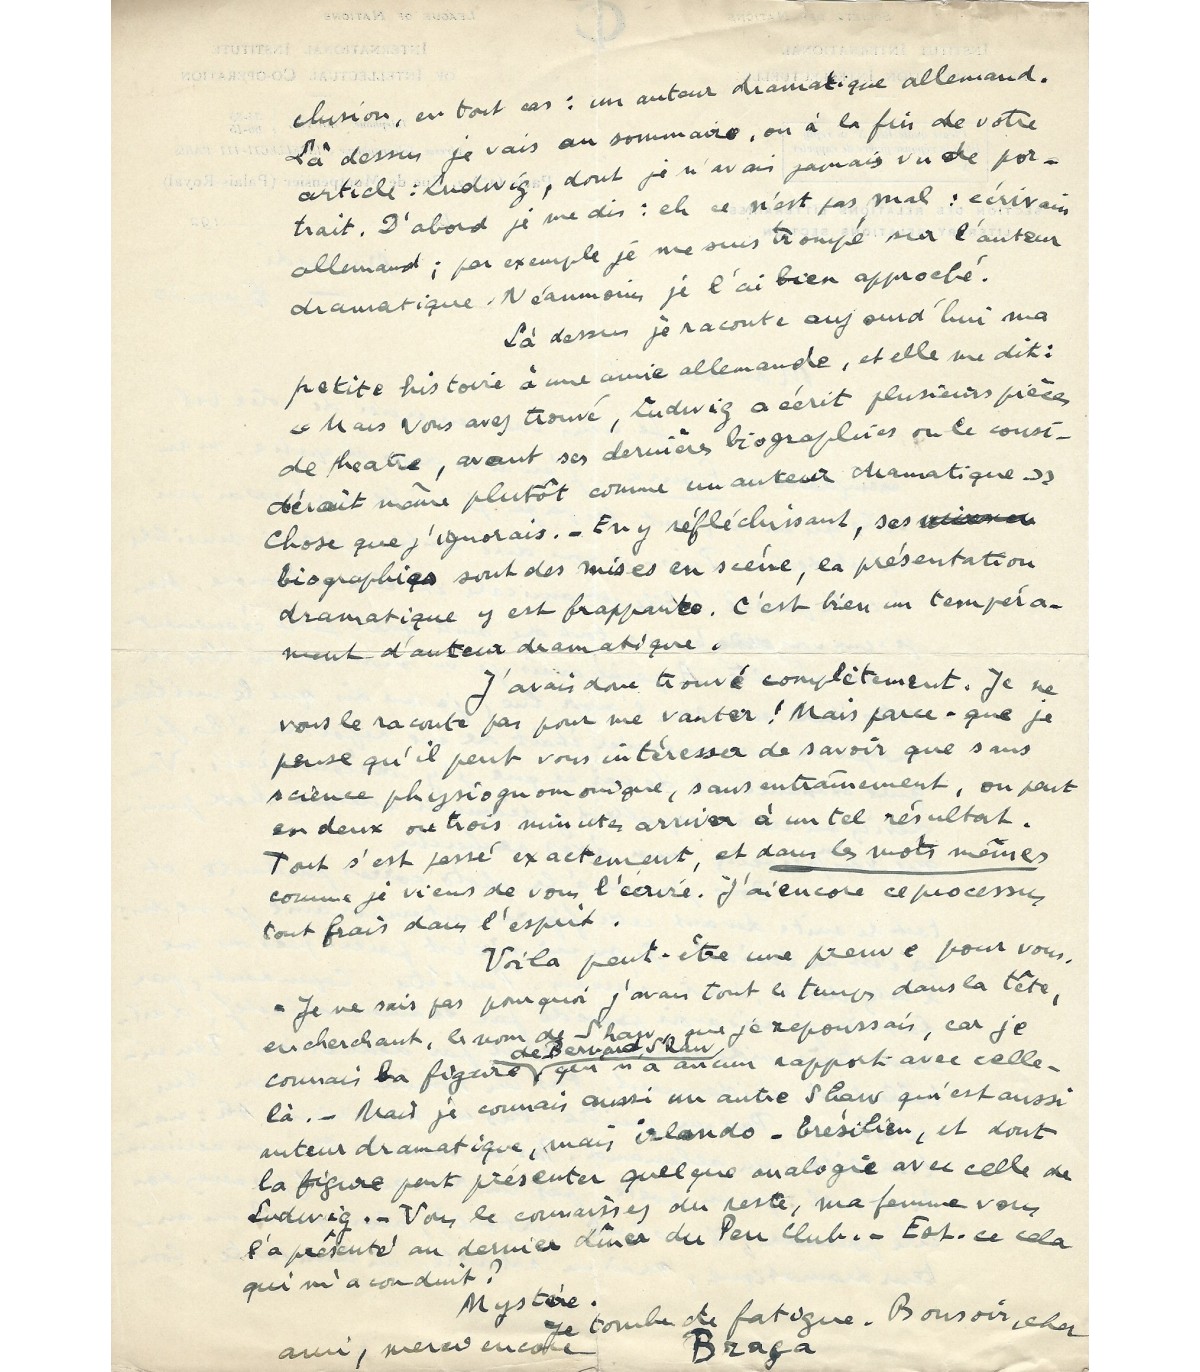 clusion, en tout cas : un auteur dramatique allemand.
Là dessus je vais au sommaire, ou à la fin de votre
article : Ludwig, dont je n'avais jamais vu de por-
trait. D'abord je me dis : eh ce n'est pas mal : écrivain
allemand ; par exemple je me suis trompé sur l'auteur
dramatique. Néanmoins je l'ai bien approché.
Là dessus je raconte aujourd'hui ma
petite histoire à une amie allemande, et elle me dit :
« Mais vous avez trouvé, Ludwig a écrit plusieurs pièces
de theatre, avant ses dernières biographies on le consi-
dérait même plutôt comme un auteur dramatique. »
Chose que j'ignorais. - En y réfléchissant, ses
biographies sont des mises en scène, la présentation
dramatique y est frappante. C'est bien un tempéra-
ment d'auteur dramatique.
J'avais donc trouvé complètement. Je ne
vous le raconte pas pour me vanter ! Mais parce-que je
pense qu'il peut vous intéresser de savoir que sans
science physiognomonique, sans entraînement, on peut
en deux ou trois minutes arriver à un tel résultat.
Tout s'est passé exactement, et dans les mots mêmes
comme je viens de vous l'écrire. J'ai encore ce processus
tout frais dans l'esprit.
Voila peut-être une preuve pour vous.
- Je ne sais pas pourquoi j'avais tout le temps dans la tête,
en cherchant, le nom de Shaw, que je repoussais, car je
connais la figure de Bernard Shaw, qui n'a aucun rapport avec celle-
là. - Mais je connais aussi un autre Shaw qu'est aussi
auteur dramatique, mais irlando-brésilien, et dont
la figure peut présenter quelque analogie avec celle de
Ludwig. - Vous le connaissez du reste, ma femme vous
l'a présenté au dernier dîner du Pen Club. - Est-ce cela
qui m'a conduit ?
Mystère.
Je tombe de fatigue. Bonsoir, cher
ami, merci encore
Braga